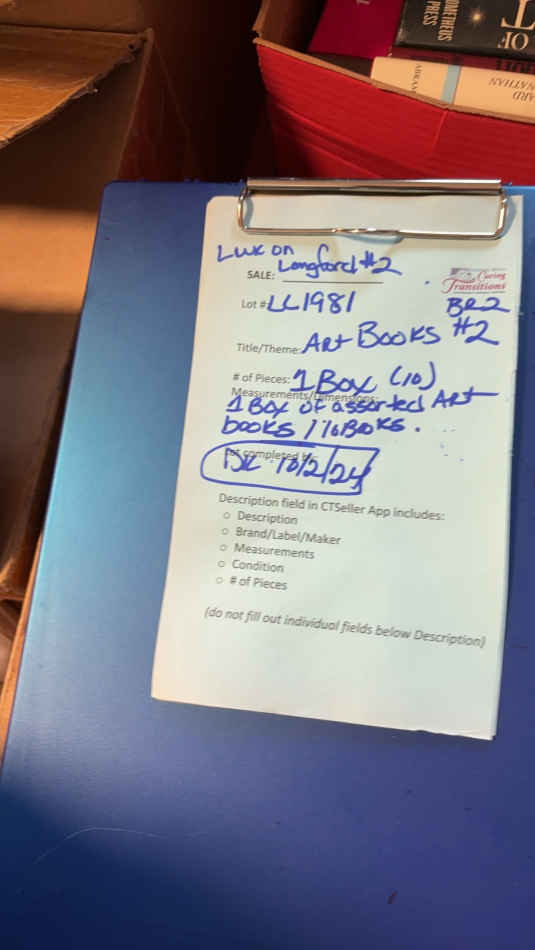 OMETHEUS
PRESS
OF
NATHAN
ARD
Lux on
Longford #2
SALE:
Caring
Transitions
Lot # LL1981
BR2
Title/Theme: Art Books #2
# of Pieces: 1 Box (10)
Measurements/Dimensions:
1 Box of assorted Art
books / 10 Books.
Lot completed by:
10/2/24
Description field in CTSeller App includes:
o Description
o Brand/Label/Maker
o Measurements
o Condition
o # of Pieces
(do not fill out individual fields below Description)